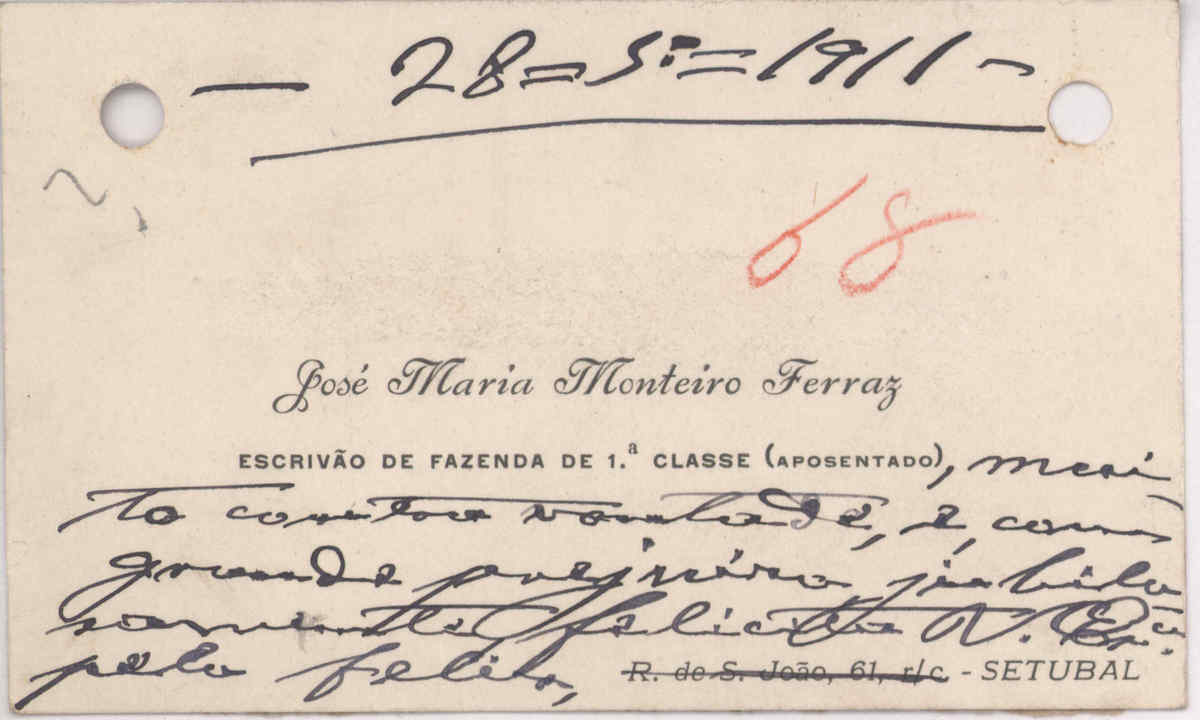 — 28 = 5.º = 1911 —
68
José Maria Monteiro Ferraz
ESCRIVÃO DE FAZENDA DE 1.ª CLASSE (APOSENTADO), mui
to contra vontade, e, com
grande prejuizo, jubilo
samente felicita V. Ex.cia
pelo feliz,
R. de S. João, 61, r/c - SETUBAL